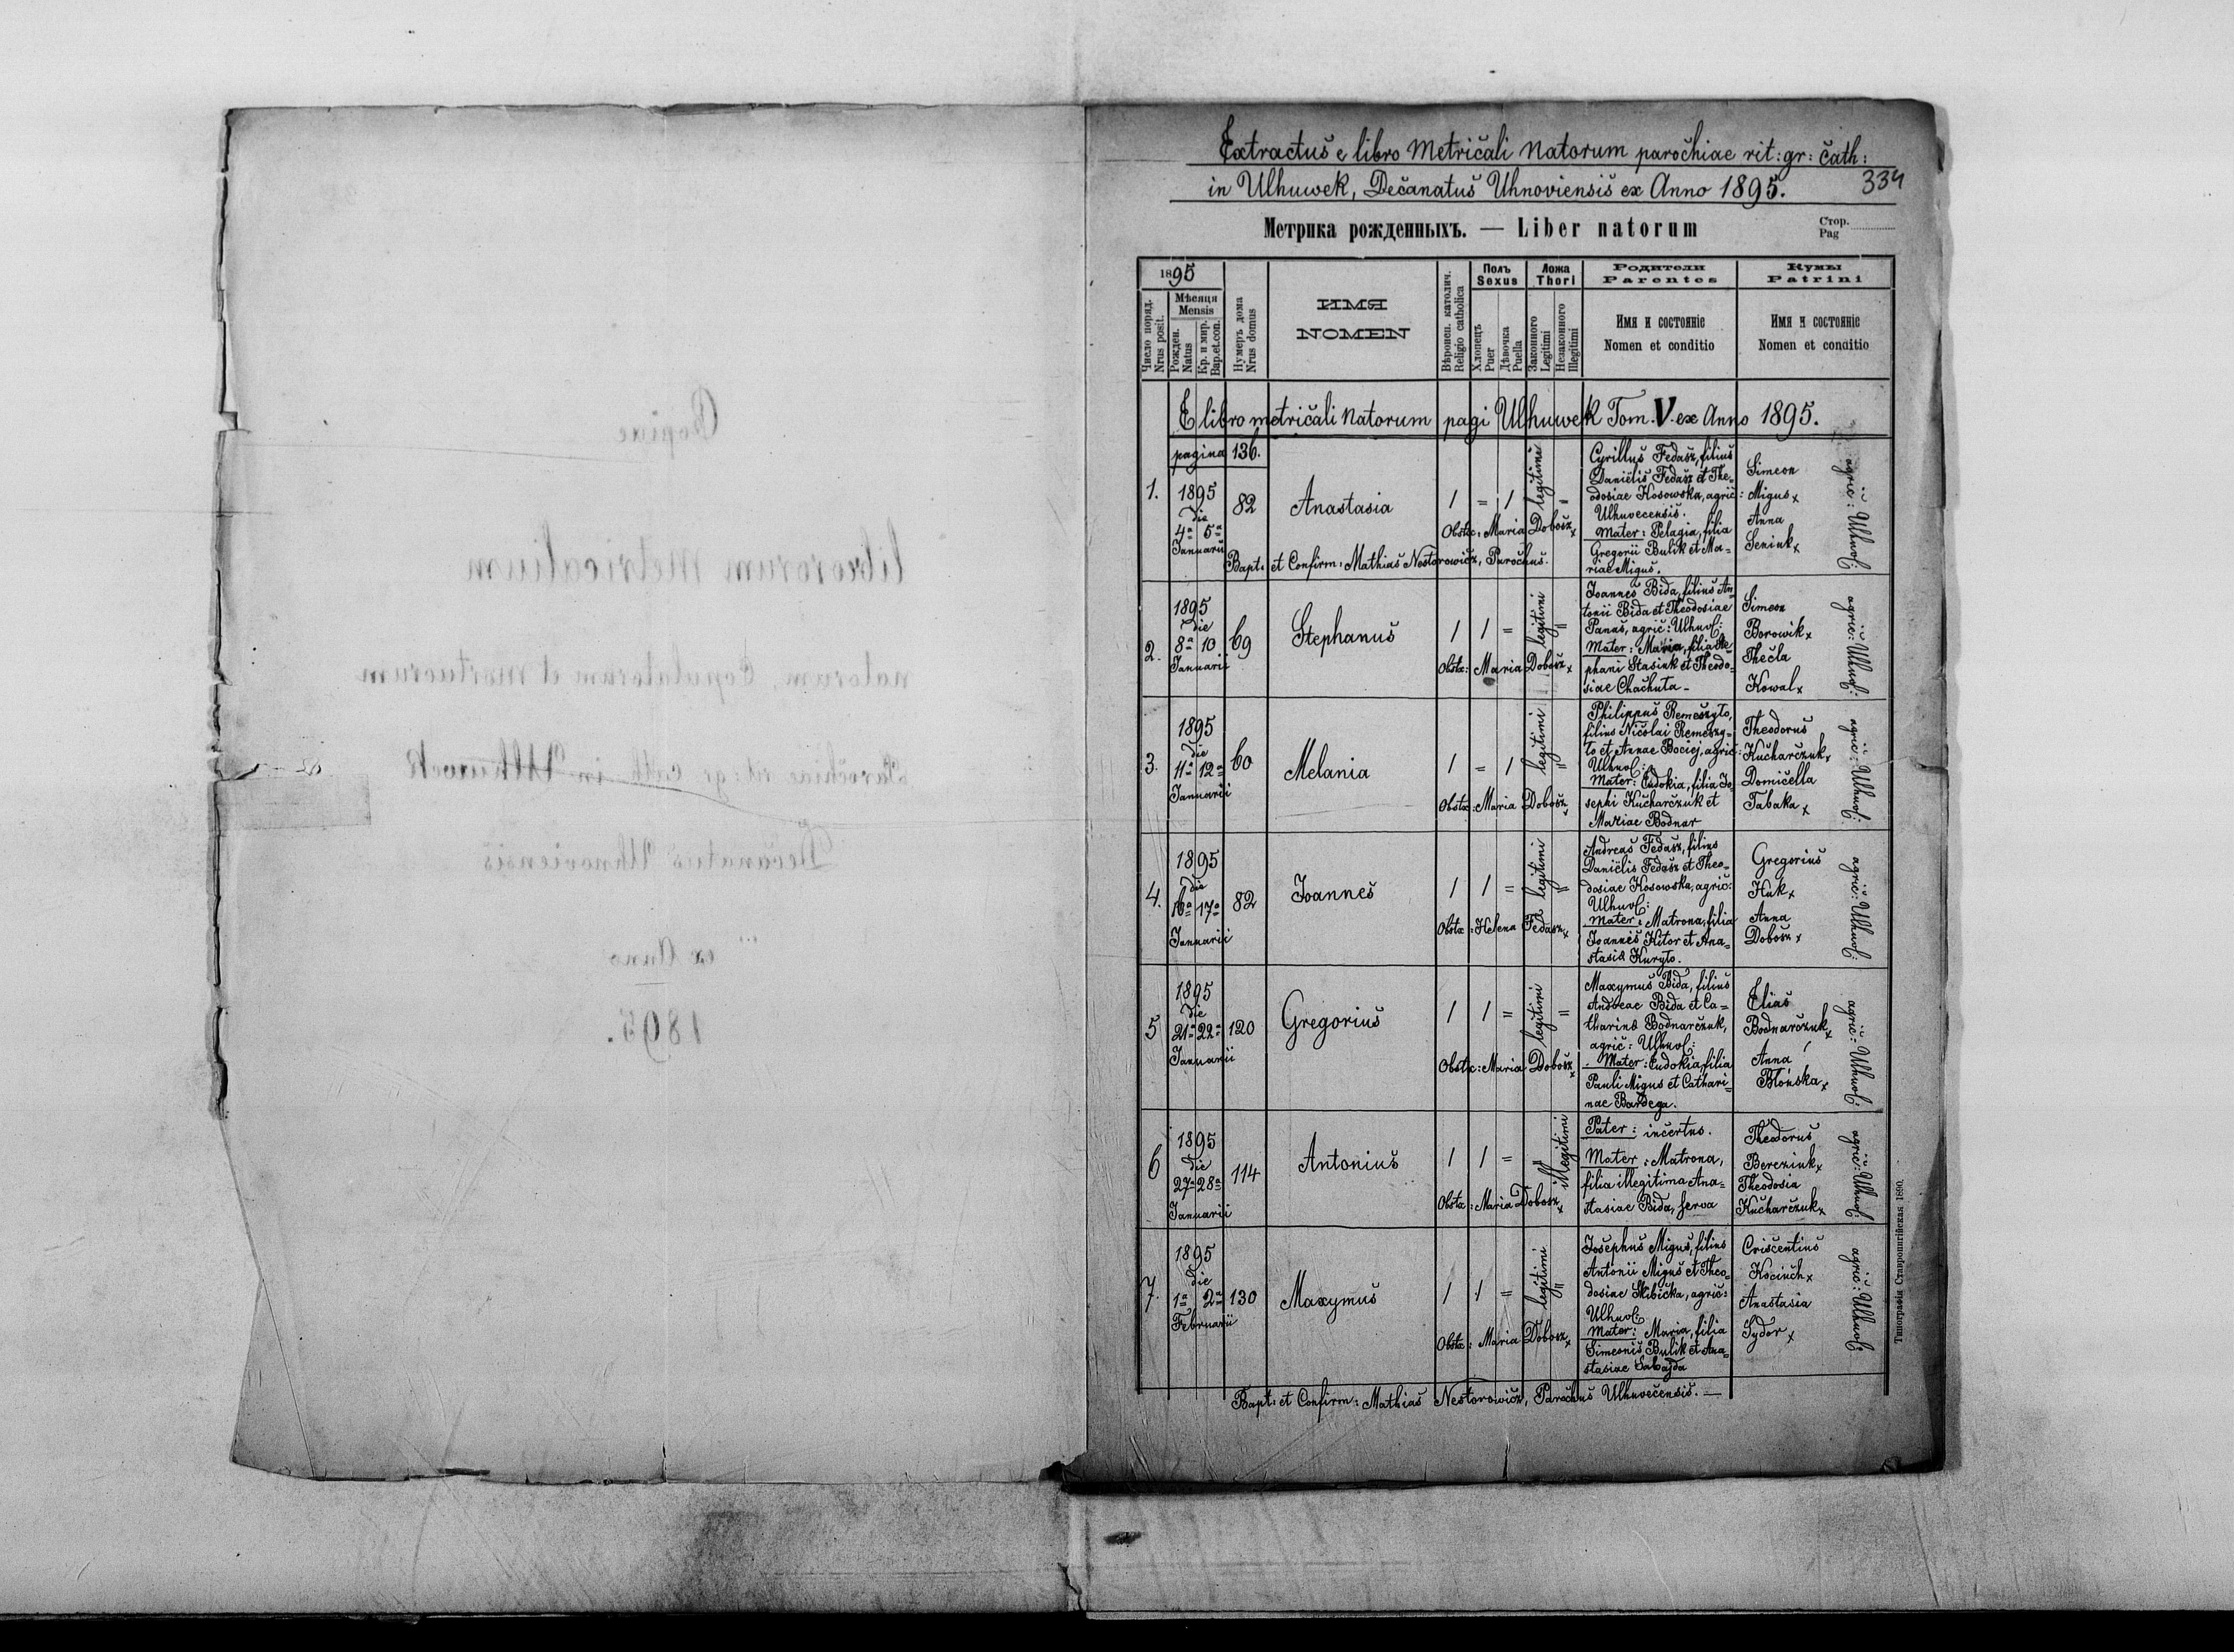 Copiae
librorum metricalium
natorum, Copulatorum et mortuorum
Parochiae rit: gr. cath. in Ulhuwek
Decanatus Uhnoviensis
ex Anno
1895.
Extractus e libro Metricali Natorum parochiae rit: gr: cath:
in Ulhuwek, Decanatus Uhnoviensis ex Anno 1895.
334
Метрика рожденныхъ. — Liber natorum
Стор.
Pag
1895
Число поряд.
Nrus posit.
Мѣсяця
Mensis
Рожден.
Natus
Кр. и мир.
Bap. et. con.
Нумеръ дома
Nrus domus
ИМЯ
NOMEN
Вѣроисп. католич.
Religio catholica
Полъ
Sexus
Хлопецъ
Puer
Дѣвочка
Puella
Ложа
Thori
Законного
Legitimi
Незаконного
Illegitimi
Родители
Parentes
Имя и состояніе
Nomen et conditio
Кумы
Patrini
Имя и состояніе
Nomen et conditio
E libro metricali Natorum pagi Ulhuwek Tom. V. ex Anno 1895.
pagina 136.
1.
1895
die
4a 5a
Januarii
82
Anastasia
1 = 1 legitimi "
Obstx: Maria Dobosz x
Bapt: et Confirm: Mathias Nestorowicz, Parochus.
Cyrillus Fedasz, filius
Danielis Fedasz et The-
odosiae Kosowska, agric:
Ulhuvecensis.
Mater: Pelagia, filia
Gregorii Bulik et Ma-
riae Migus.
Simeon
Migus x
Anna
Seniuk x
agric: Ulhuv:
2.
1895
die
8a 10
Januarii
69
Stephanus
1 1 = legitimi "
Obstx: Maria Dobosz x
Joannes Bida, filius An-
tonii Bida et Theodosiae
Panas, agric: Ulhuv:
Mater: Maria, filia Ste-
phani Stasiuk et Theodo-
siae Chachuta -
Simeon
Borowik x
Thecla
Kowal x
agric: Ulhuv:
3.
1895
die
11a 12a
Januarii
60
Melania
1 = 1 legitimi "
Obstx: Maria Dobosz x
Philippus Remeszyto,
filius Nicolai Remeszy-
to et Annae Bociej, agric:
Ulhuv:
Mater: Eudokia, filia Jo
sephi Kucharczuk et
Mariae Bodnar
Theodorus
Kucharczuk x
Domicella
Tabaka x
agric: Ulhuv:
4.
1895
die
16a 17a
Januarii
82
Joannes
1 1 = legitimi "
Obstx: Helena Fedasz x
Andreas Fedasz, filius
Danielis Fedasz et Theo-
dosiae Kosowska, agric:
Ulhuv:
Mater: Matrona, filia
Joannis Kitor et Ana-
stasiae Kuryto.
Gregorius
Huk x
Anna
Dobosz x
agric: Ulhuv:
5
1895
die
21a 22a
Januarii
120
Gregorius
1 1 = legitimi "
Obstx: Maria Dobosz x
Maxymus Bida, filius
Andreae Bida et Ca-
tharinae Bodnarczuk,
agric: Ulhuv:
Mater: Eudokia, filia
Pauli Migus et Cathari-
nae Bardega.
Elias
Bodnarczuk x
Anna
Błońska x
agric: Ulhuv:
6
1895
die
27a 28a
Januarii
114
Antonius
1 1 = " illegitimi
Obstx: Maria Dobosz x
Pater: incertus.
Mater: Matrona,
filia illegitima Ana-
stasiae Bida, serva
Theodorus
Bereziuk x
Theodosia
Kucharczuk x
agric: Ulhuv:
7.
1895
die
1a 2a
Februarii
130
Maxymus
1 1 = legitimi "
Obstx: Maria Dobosz x
Josephus Migus, filius
Antonii Migus et Theo-
dosiae Skibicka, agric:
Ulhuv:
Mater: Maria, filia
Simeonis Bulik et Ana-
stasiae Sabajda
Criscentius
Kociuch x
Anastasia
Sydor x
agric: Ulhuv:
Bapt: et Confirm: Mathias Nestorowicz, Parochus Ulhuvecensis. —
Типографія Ставропигійская 1890.